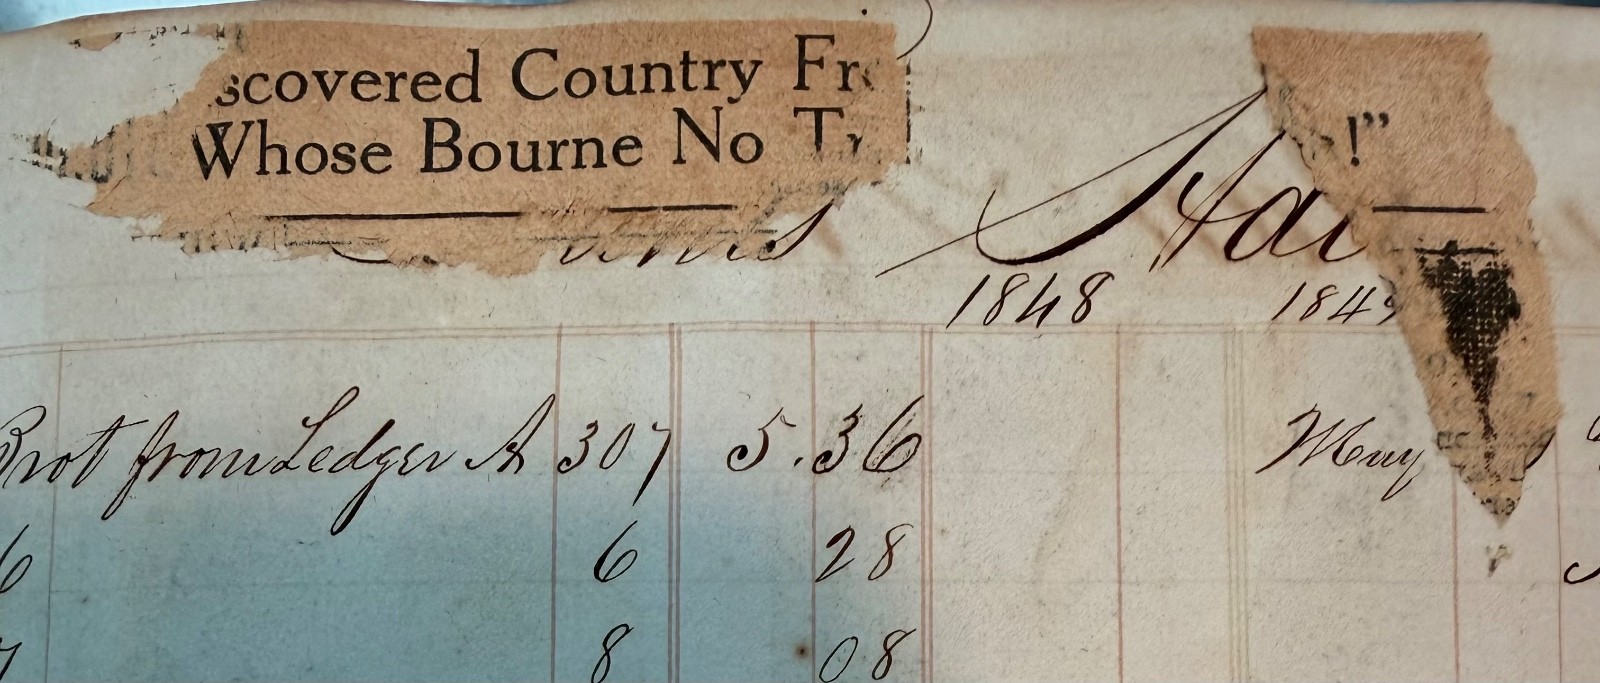 scovered Country Fr
Whose Bourne No Tr
!”
1848 184
Brot from Ledger A 307 5.36 May
6 6 28
8 08